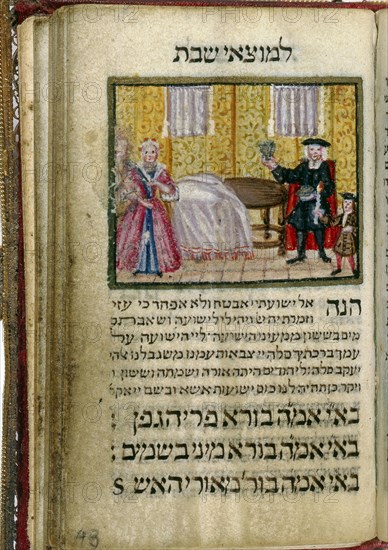 למוצאי שבת
הנה אל ישועתי אבטח ולא אפחד כי עזי
וזמרת יה יי ויהי לי לישועה ושאבתם
מים בששון ממעיני הישועה לײ הישועה על
עמך ברכתך סלה יי צבאות עמנו משגב לנו אלהי
יעקב סלה ליהודים היתה אורה ושמחה וששון ו
ויקר כן תהיה לנו כוס ישועות אשא ובשם יי
באי אמ״ה בורא פרי הגפן
באי אמ״ה בורא מיני בשמים :
באי אמ״ה בור׳ מאורי האש S
43